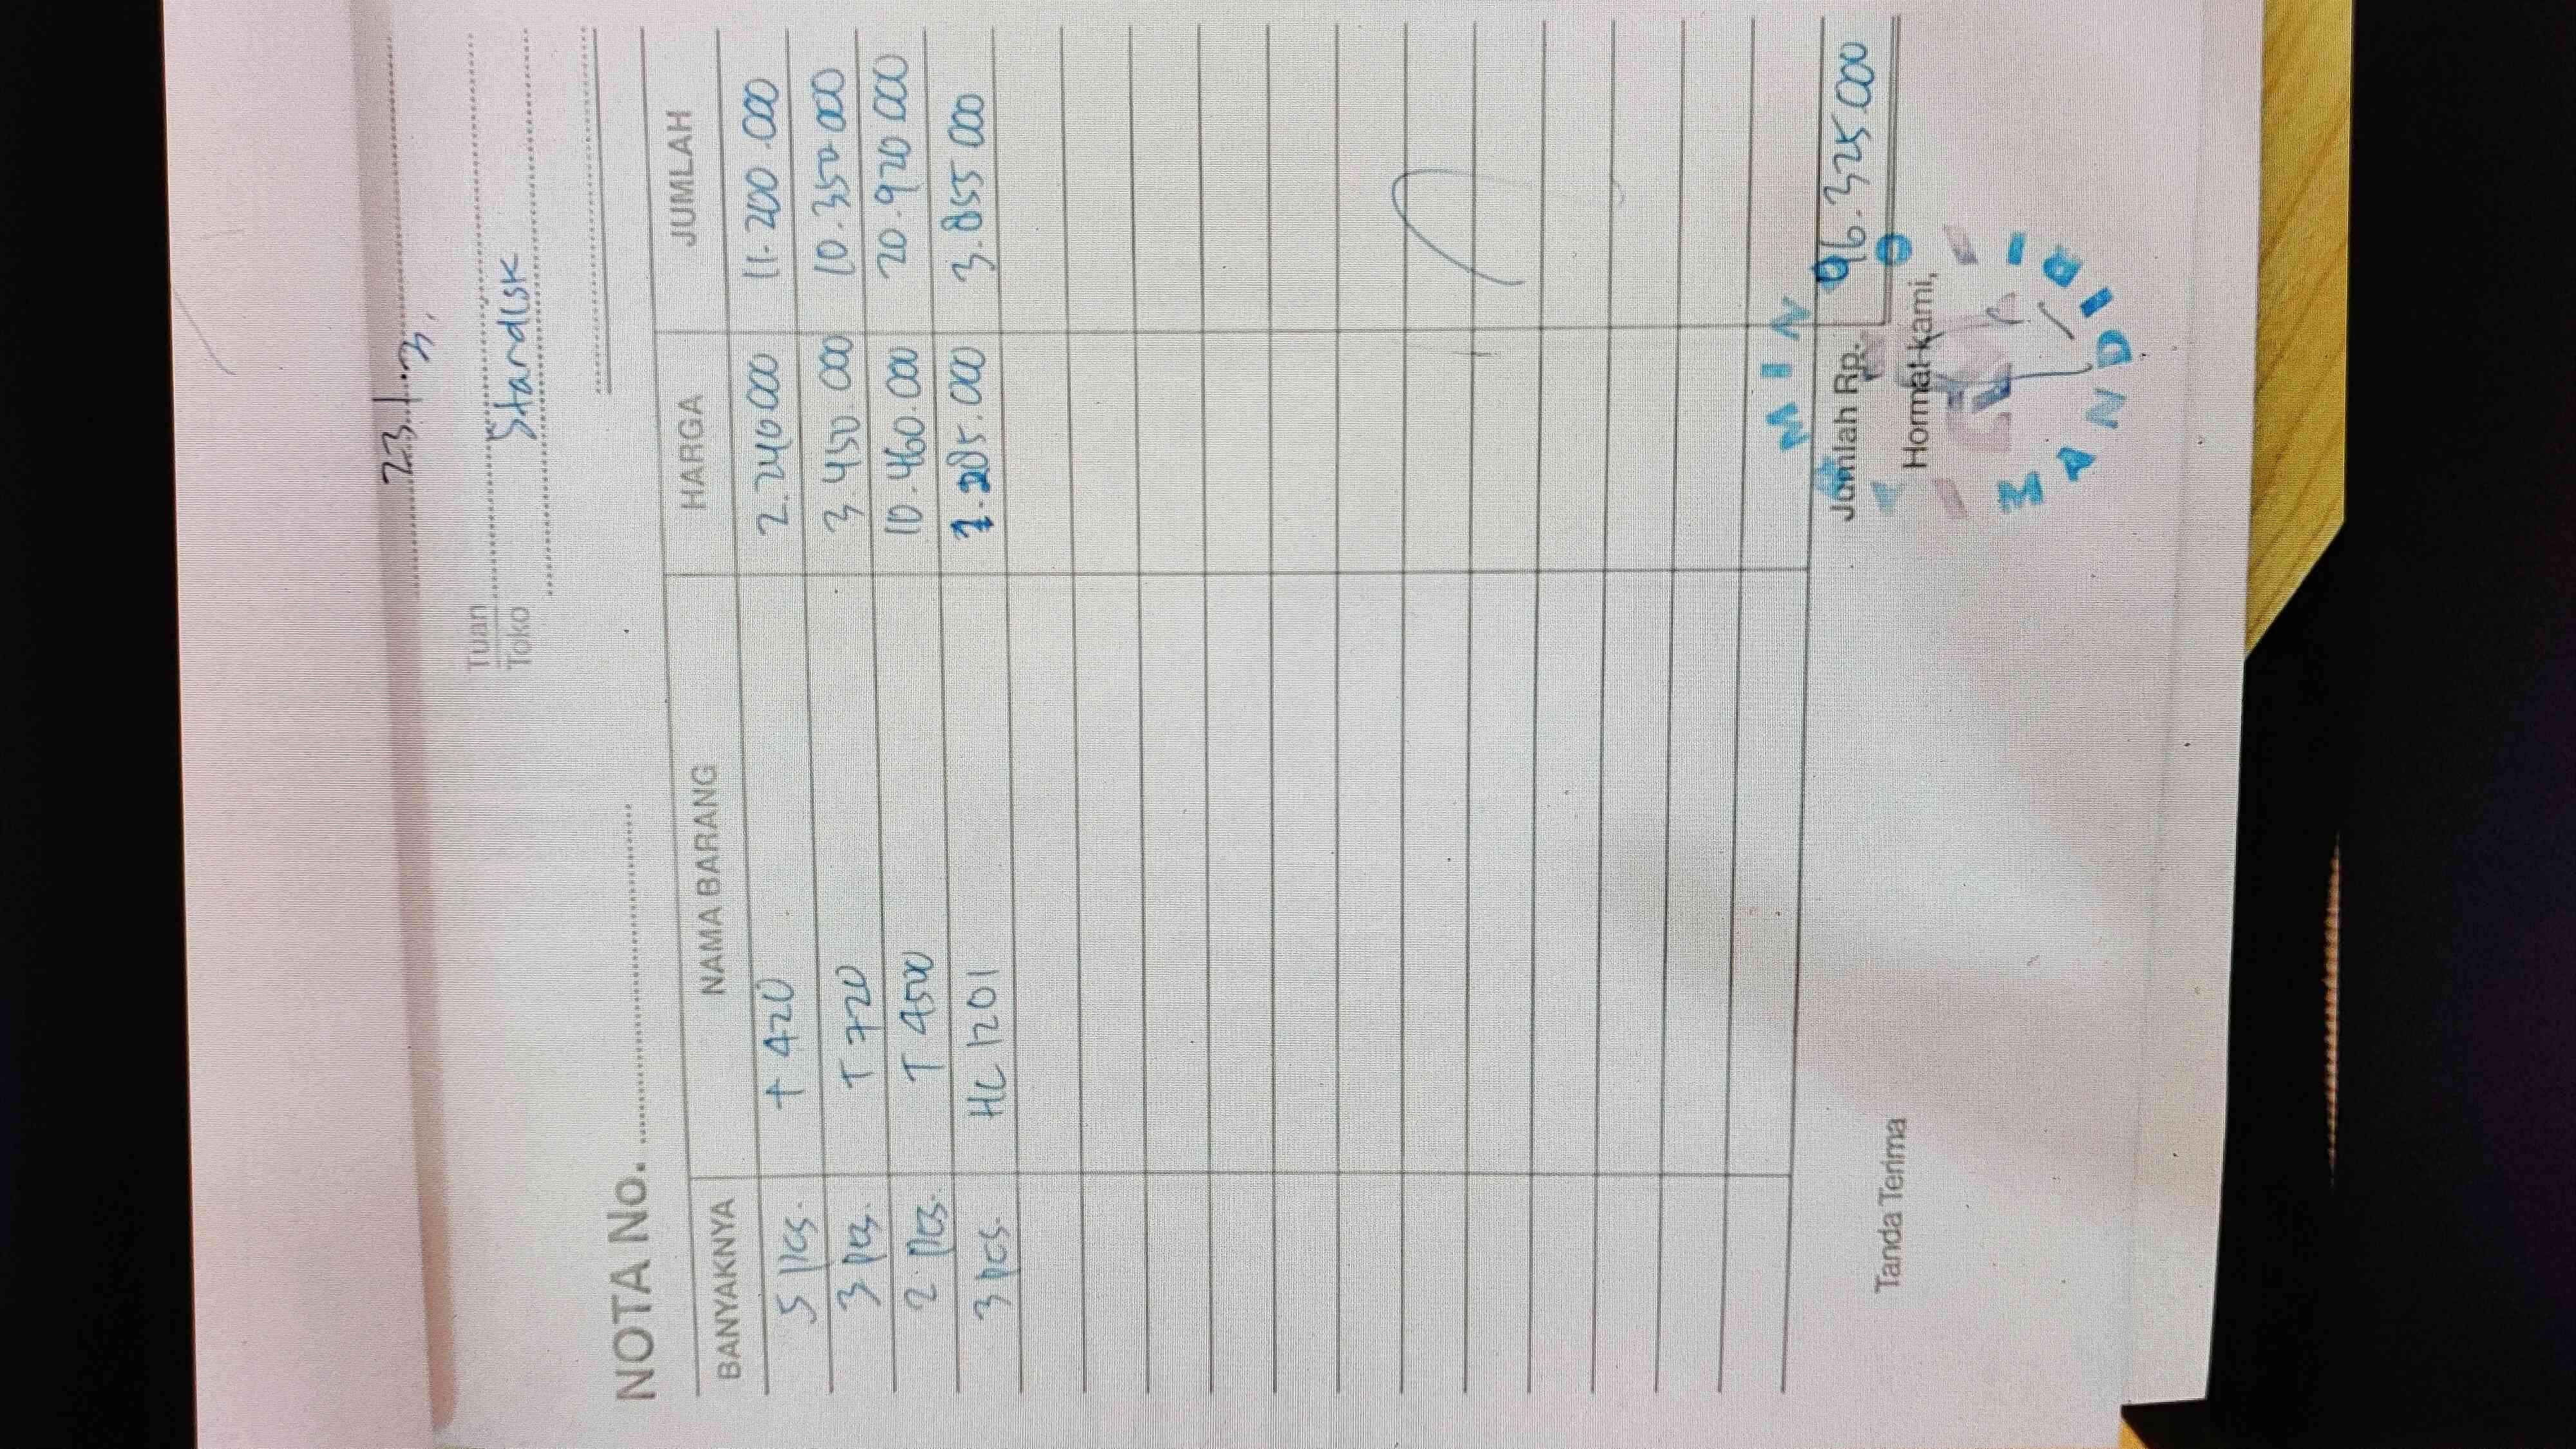 23/-3,
Tuan
Toko Standisk
NOTA No.
BANYAKNYA NAMA BARANG HARGA JUMLAH
5 pcs. T 420 2.240 000 11.200.000
3 pcs. T 720 3.450 000 10.350 000
2 pcs. T 4500 10.460.000 20.920 000
3 pcs. HL 1201 1.285.000 3.855 000
Jumlah Rp. 96.325.000
Tanda Terima Hormat kami,
MANDIRI